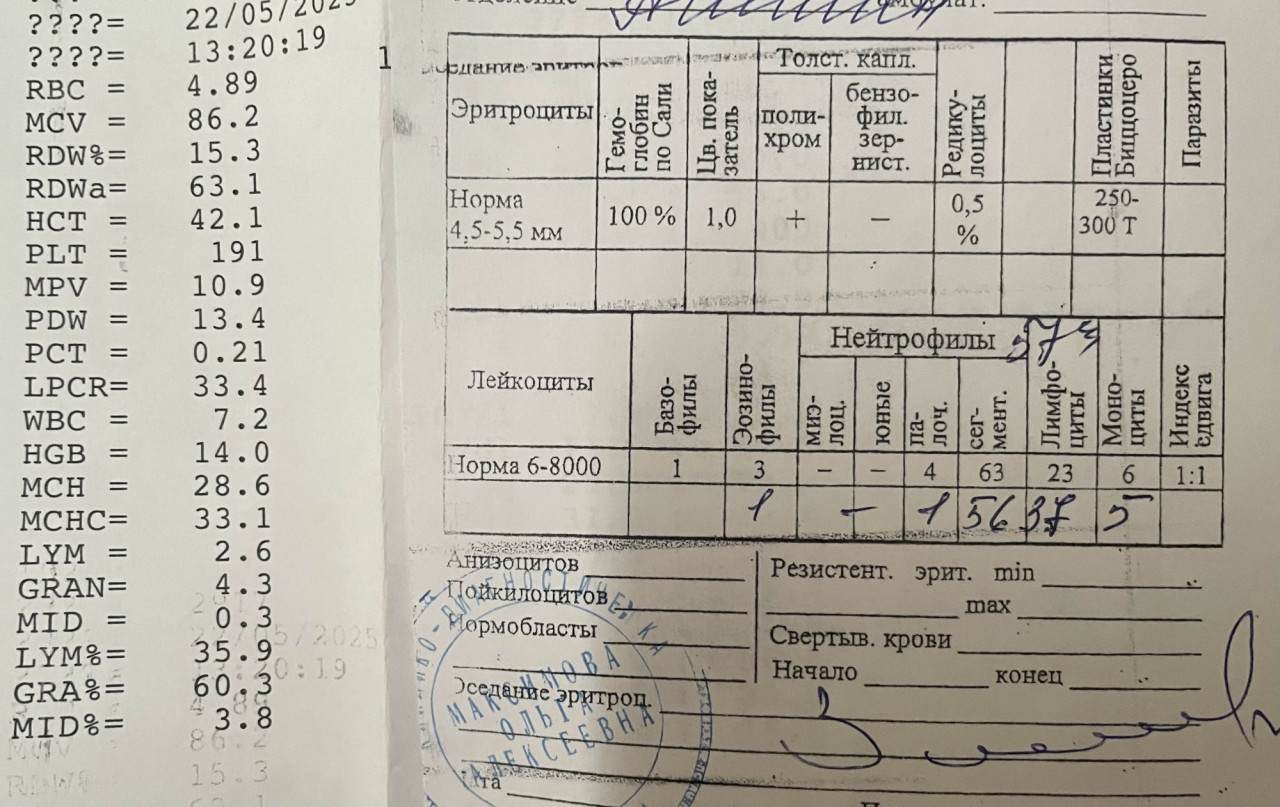 ????= 22/05/2025
????= 13:20:19
1
RBC = 4.89
MCV = 86.2
RDW%= 15.3
RDWa= 63.1
HCT = 42.1
PLT = 191
MPV = 10.9
PDW = 13.4
PCT = 0.21
LPCR= 33.4
WBC = 7.2
HGB = 14.0
MCH = 28.6
MCHC= 33.1
LYM = 2.6
GRAN= 4.3
MID = 0.3
LYM%= 35.9
GRA%= 60.3
MID%= 3.8
22/05/2025
13:20:19
86.2
15.3
Эритроциты
Гемо-
глобин
по Сали
Цв. пока-
затель
Толст. капл.
поли-
хром
бензо-
фил.
зер-
нист.
Редику-
лоциты
Пластинки
Биццоцеро
Паразиты
Норма
4,5-5,5 мм
100 %
1,0
+
–
0,5
%
250-
300 Т
Лейкоциты
Базо-
филы
Эозино-
филы
Нейтрофилы
57
миэ-
лоц.
юные
па-
лоч.
сег-
мент.
Лимфо-
циты
Моно-
циты
Индекс
сдвига
Норма 6-8000 1 3 – – 4 63 23 6 1:1
1 – 1 56 37 5
Анизоцитов
Пойкилоцитов
Нормобласты
Оседание эритроц.
Резистент. эрит. min
max
Свертыв. крови
Начало конец
МАКСИМОВА
ОЛЬГА
АЛЕКСЕЕВНА